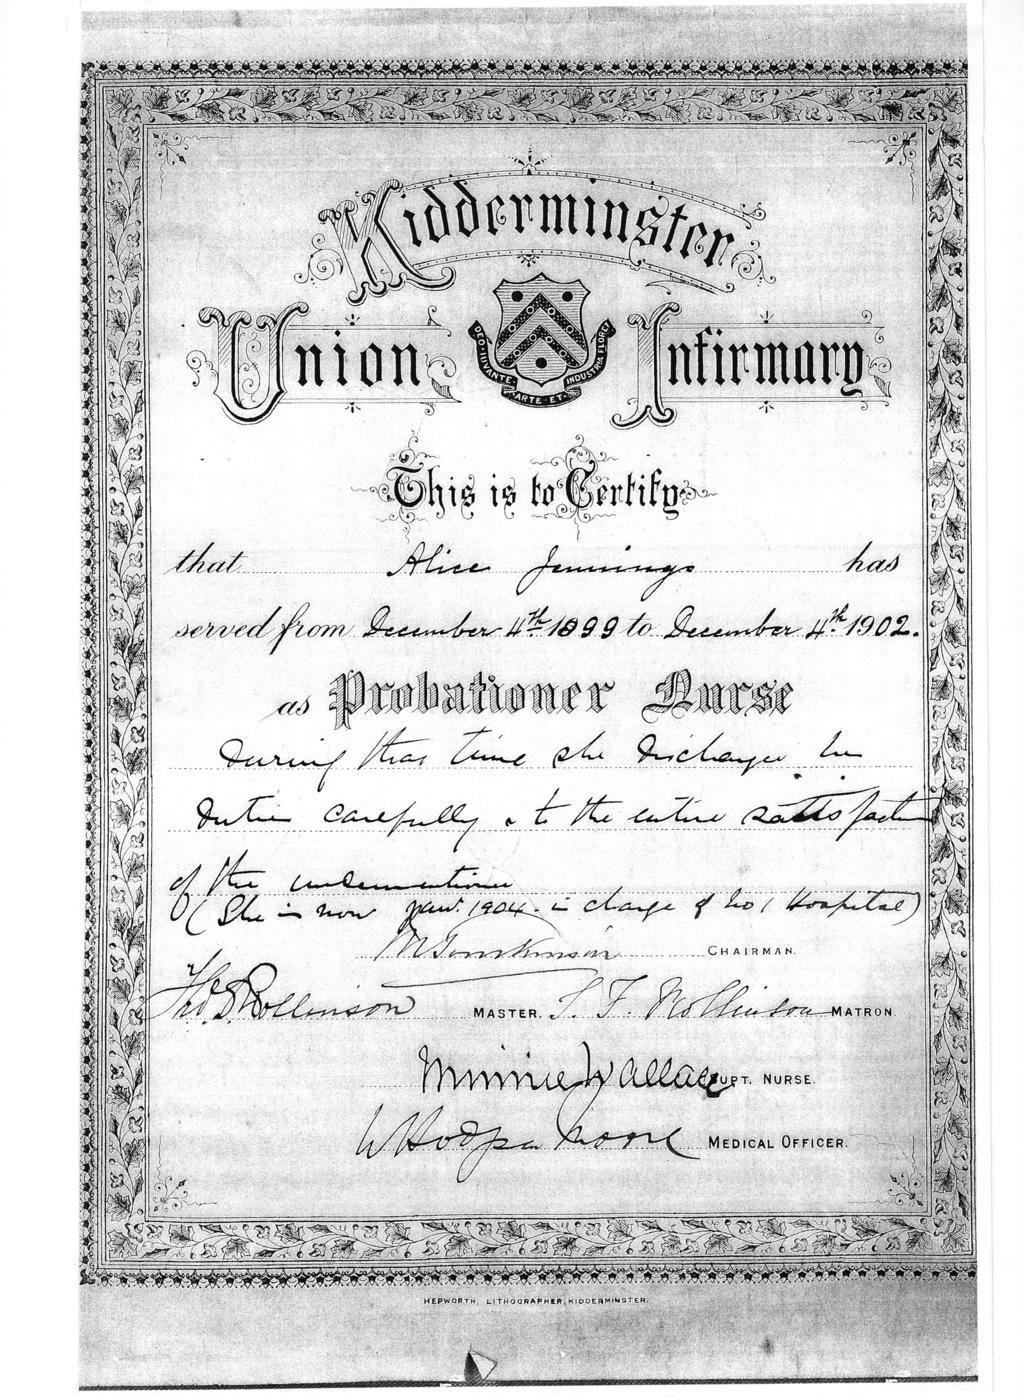 Kidderminster
Union Infirmary
DEO JUVANTE ARTE ET INDUSTRIA FLORET
This is to Certify
that Alice Jennings has
served from December 4th 1899 to December 4th 1902.
as Probationer Nurse
During that time she discharged her
duties carefully & to the entire satisfaction
of the undermentioned
(She is now Jany. 1904. in charge of No 1 Hospital)
M Tomkinson CHAIRMAN.
Thos. Rollinson MASTER. S. F. Rollinson MATRON
Minnie Wallace SUPT. NURSE.
W Hodgson Moore MEDICAL OFFICER.
HEPWORTH, LITHOGRAPHER, KIDDERMINSTER.